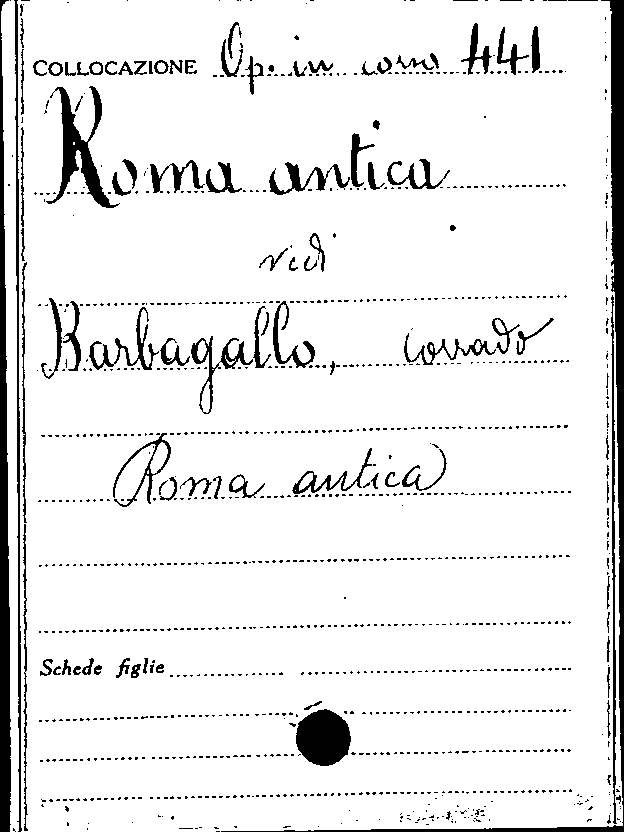 COLLOCAZIONE Op. in corso 441
Roma antica
vedi
Barbagallo, Corrado
Roma antica
Schede figlie